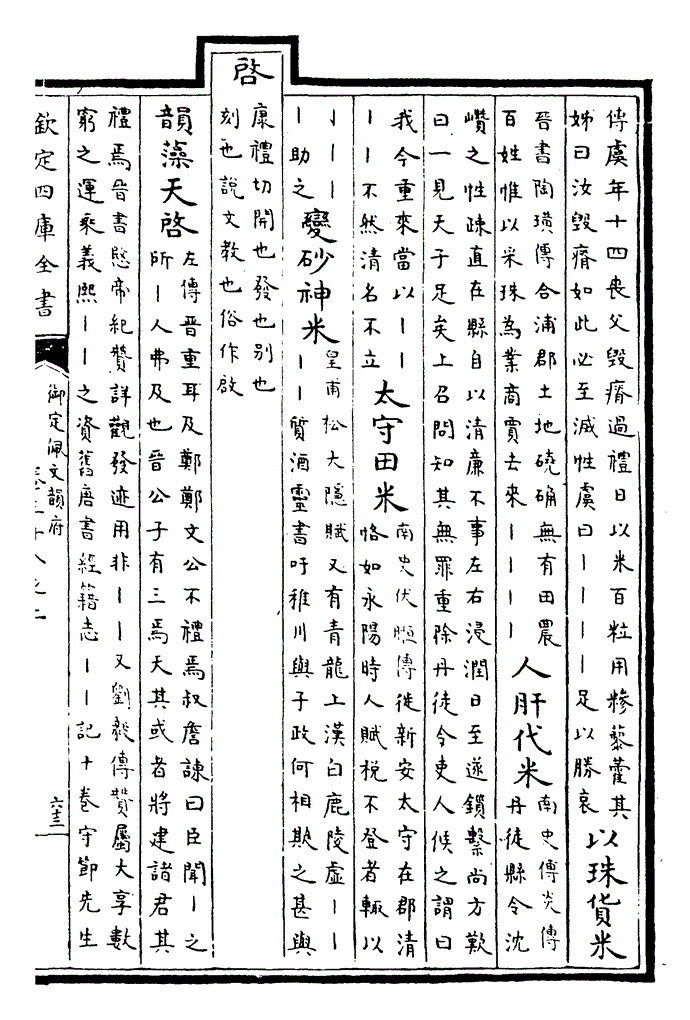 傳虞年十四喪父毀瘠過禮日以米百粒用糝藜藿其
姊曰汝毀瘠如此必至滅性虞曰丨丨丨丨足以勝哀
以珠貨米
晉書陶璜傳合浦郡土地磽确無有田農
百姓惟以采珠為業商賈去來丨丨丨丨
人肝代米
南史傳炎傳
丹徒縣令沈
巑之性疎直在縣自以清廉不事左右浸潤日至遂鎖繫尚方歎
曰一見天子足矣上召問知其無罪重除丹徒令吏人候之謂曰
我今重來當以丨丨
丨丨不然清名不立
太守田米
南史伏暅傳徙新安太守在郡清
恪如永陽時人賦稅不登者輒以
丨丨丨
丨助之
變砂神米
皇甫松大隱賦又有青龍上漢白鹿陵虛丨丨
丨丨質酒靈書吁稚川與子政何相欺之甚與
啓
康禮切開也發也别也
刻也說文教也俗作啟
韻藻
天啓
左傳晉重耳及鄭鄭文公不禮焉叔詹諫曰臣聞丨之
所丨人弗及也晉公子有三焉天其或者將建諸君其
禮焉晉書愍帝紀贊詳觀發迹用非丨丨又劉毅傳贊屬大享數
窮之運乘義熙丨丨之資舊唐書經籍志丨丨記十卷守節先生
欽定四庫全書
御定佩文韻府
六十三